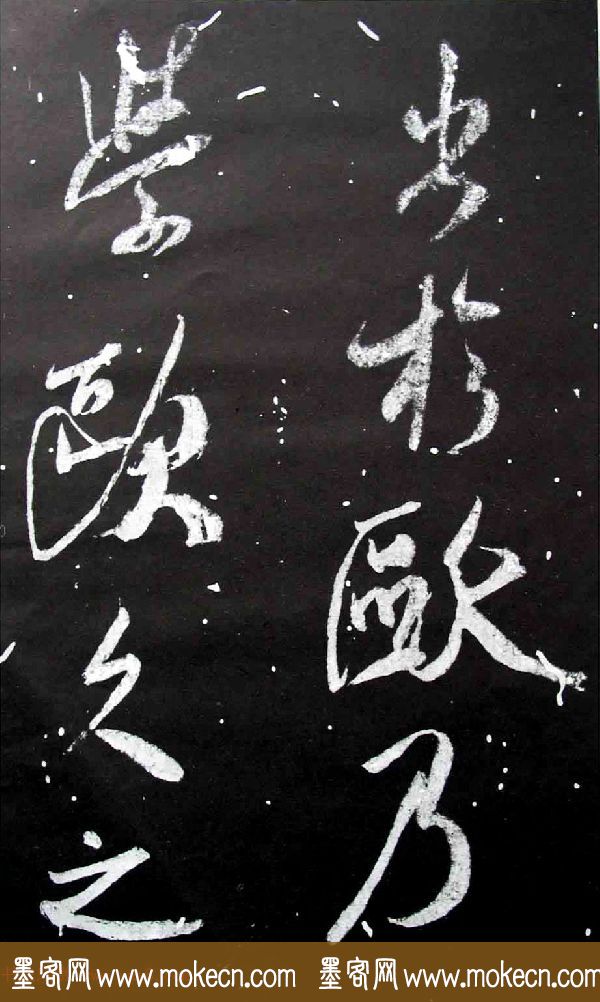 出於歐乃
學歐久之
墨客网 www.mokecn.com 墨客网 www.mokecn.com